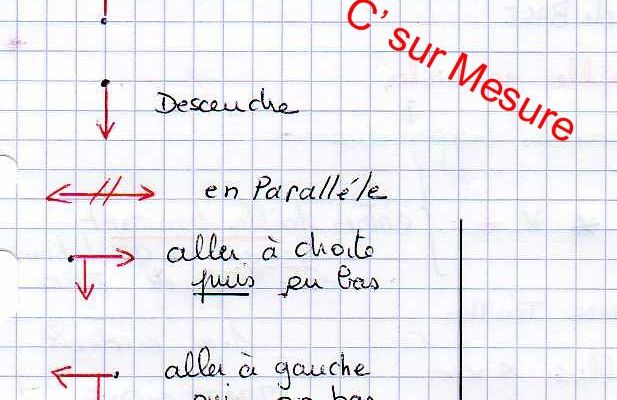 C' sur Mesure
Descendre
en Parallèle
aller à droite
puis en bas
aller à gauche
puis en bas